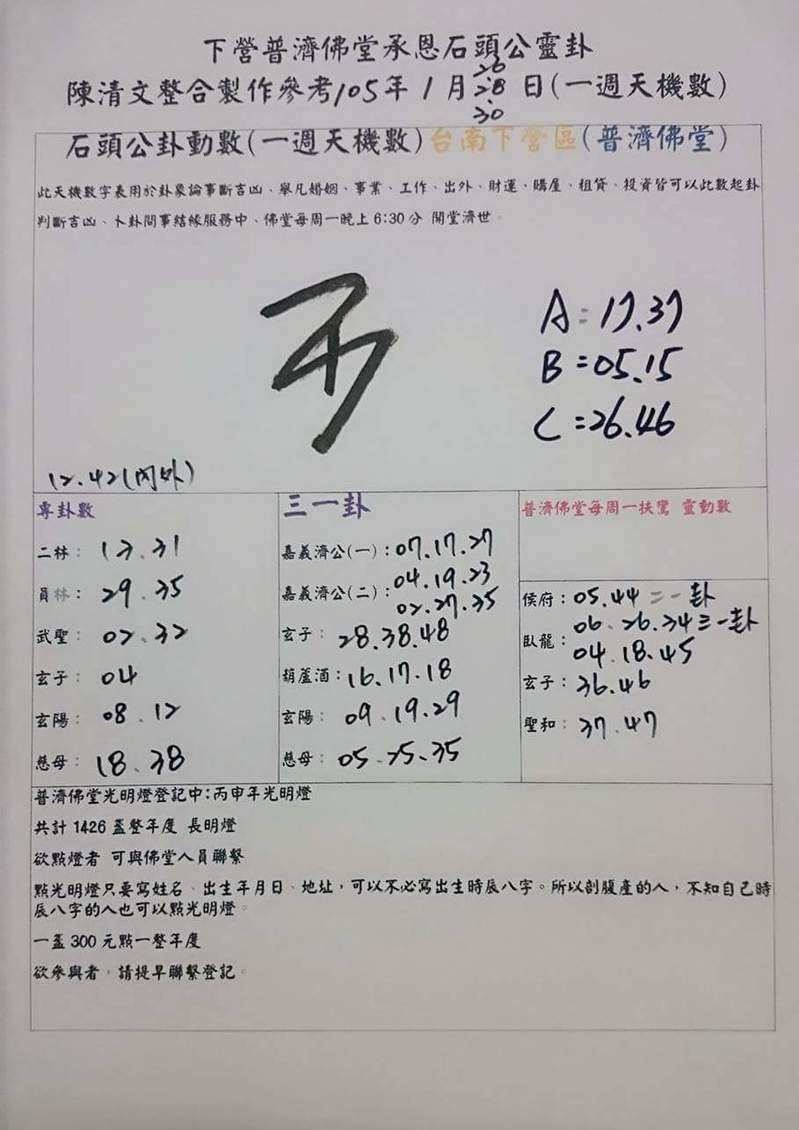 下營普濟佛堂承恩石頭公靈卦
陳清文整合製作參考105年1月26.28.30日(一週天機數)
石頭公卦動數(一週天機數)台南下營區(普濟佛堂)
此天機數字表用於卦象論事斷吉凶、舉凡婚姻、事業、工作、出外、財運、購屋、租賃、投資皆可以此數起卦
判斷吉凶、卜卦問事結緣服務中、佛堂每周一晚上6:30分 開堂濟世。
A=17.37
B=05.15
C=26.46
12.42(內外)
專卦數
二林: 13.31
員林: 29.35
武聖: 02.32
玄子: 04
玄陽: 08.12
慈母: 18.38
三一卦
嘉義濟公(一):07.17.27
嘉義濟公(二):04.19.23
02.27.35
玄子: 28.38.48
葫蘆酒:16.17.18
玄陽: 09.19.29
慈母: 05.25.35
普濟佛堂每周一扶鸞 靈動數
侯府:05.44 二一卦
06.26.34三一卦
臥龍: 04.18.45
玄子: 36.46
聖和: 37.47
普濟佛堂光明燈登記中:丙申年光明燈
共計1426盞整年度 長明燈
欲點燈者 可與佛堂人員聯繫
點光明燈只要寫姓名、出生年月日、地址,可以不必寫出生時辰八字。所以剖腹產的人,不知自己時
辰八字的人也可以點光明燈。
一盞300元點一整年度
欲參與者,請提早聯繫登記。